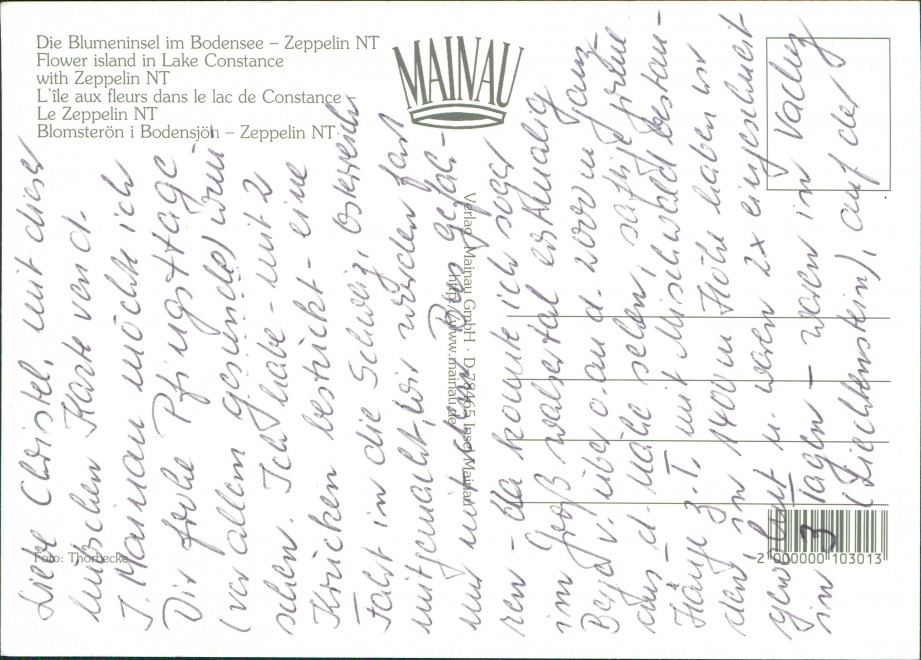 Die Blumeninsel im Bodensee – Zeppelin NT
Flower island in Lake Constance
with Zeppelin NT
L'île aux fleurs dans le lac de Constance
Le Zeppelin NT
Blomsterön i Bodensjön – Zeppelin NT
MAINAU
Verlag: Mainau GmbH · D-78465 Insel Mainau
http://www.mainau.de
Foto: Thorbecke
2 000000 103013
Liebe Christel, mit dieser
hübschen Karte von d.
I. Mainau möchte ich
Dir frohe Pfingsttage
(vor allem gesunde) wün-
schen. Ich habe – mit 2
Krücken bestückt – eine
Fahrt in die Schweiz, Österreich
mitgemacht, wir wurden fast
nur mit dem Bus gefah-
ren – da konnte ich sogar
im Großwalsertal erstmalig
Berge v. über an d. 2000 m ganz
aus d. Nähe sehen, saftig grüne
Hänge z. T. mit Mischwald bestan-
den, in 1400 m Höhe haben wir
gewohnt u. waren 2x eingeschneit
in 3 Tagen – waren in Vaduz
(Liechtenstein), auf der